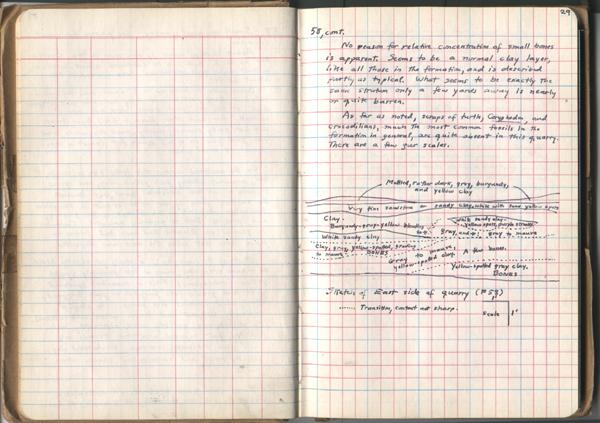 29
58, cont.
No reason for relative concentration of small bones
is apparent. Seems to be a normal clay layer,
like all those in the formation, and is described
partly as typical. What seems to be exactly the
same stratum only a few yards away is nearly
or quite barren.
As far as noted, scraps of turtle, Coryphodon, and
crocodilians, much the most common fossils in the
formation in general, are quite absent in this quarry.
There are a few gar scales.
Mottled, rather dark, gray, burgundy,
and yellow clay
Very fine sandstone or sandy clay, white with some yellow spots
Clay.
Burgundy-gray-yellow blending
to
White sandy clay
yellow spots, purple streaks
gray, and
gray to mauve
White sandy clay
Clay, gray, yellow-spotted, grading
to mauve
BONES
Gray to mauve,
yellow-spotted clay.
A few bones.
Yellow-spotted gray clay.
BONES
Sketch of East side of quarry (#58)
Transition, contact not sharp.
Scale 1'